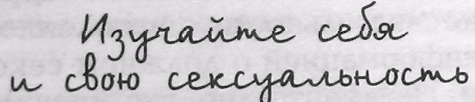 Изучайте себя
и свою сексуальность